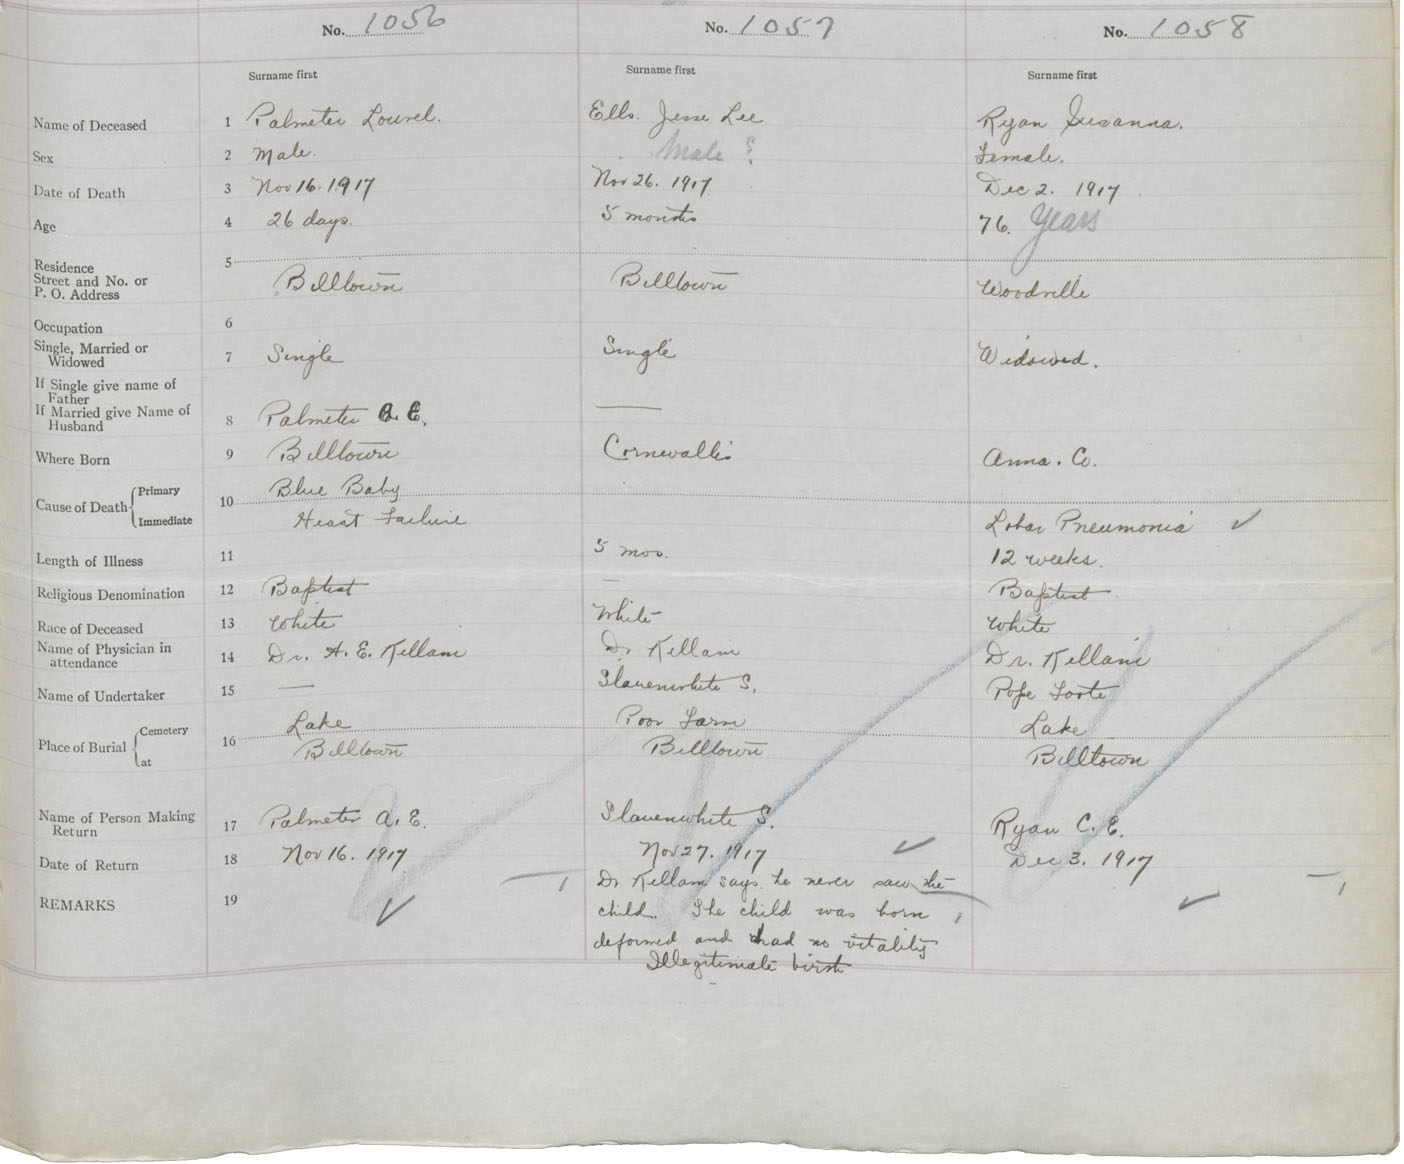 No. 1056 No. 1057 No. 1058
Surname first Surname first Surname first
Name of Deceased 1 Palmeter Lowrel. Ells. Jesse Lee Ryan Susanna.
Sex 2 Male. Male ? Female.
Date of Death 3 Nov 16. 1917 Nov 26. 1917 Dec 2. 1917
Age 4 26 days. 5 months 76. Years
Residence 5
Street and No. or
P. O. Address Billtown Billtown Woodville
Occupation 6
Single, Married or
Widowed 7 Single Single Widowed.
If Single give name of
Father
If Married give Name of
Husband 8 Palmeter A. E. —
Where Born 9 Billtown Cornwallis Anna. Co.
Cause of Death Primary 10 Blue Baby
Immediate Heart Failure Lobar Pneumonia ✓
Length of Illness 11 5 mos. 12 weeks.
Religious Denomination 12 Baptist — Baptist
Race of Deceased 13 White White White
Name of Physician in
attendance 14 Dr. H. E. Kellam Dr Kellam Dr. Kellam
Name of Undertaker 15 — Slauenwhite S. Pope Foote
Place of Burial Cemetery 16 Lake Poor Farm Lake
at Billtown Billtown Billtown
Name of Person Making
Return 17 Palmeter A. E. Slauenwhite S. Ryan C. E.
Date of Return 18 Nov 16. 1917 Nov 27. 1917 Dec 3. 1917
REMARKS 19 Dr Kellam says he never saw the
child. The child was born
deformed and had no vitality
Illegitimate birth